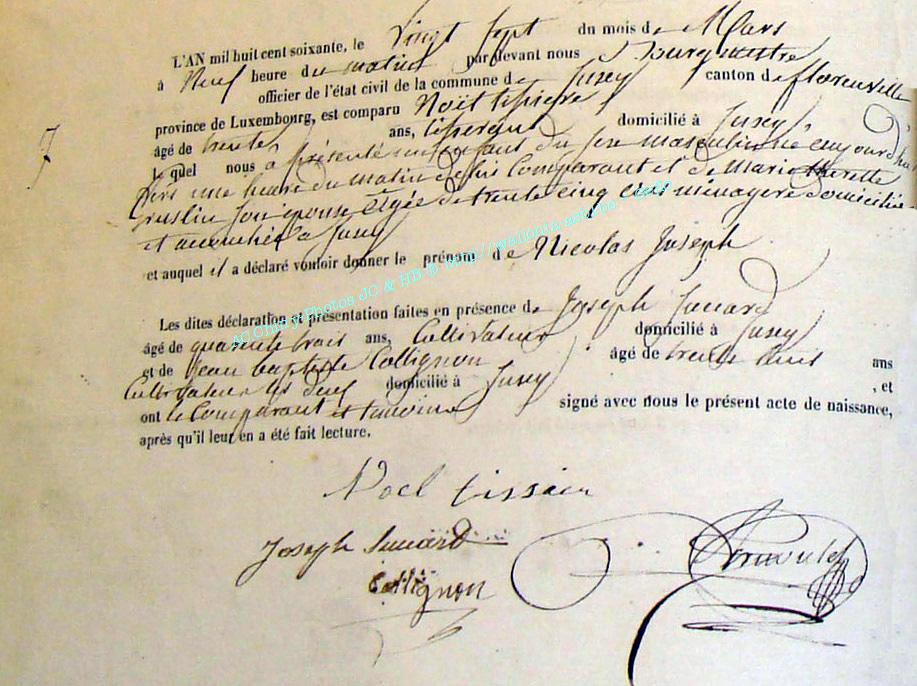 7
L'AN mil huit cent soixante, le Vingt Sept du mois de Mars
à Neuf heure du matin par devant nous Bourgmestre
officier de l'état civil de la commune de Jusey canton de florenville
province de Luxembourg, est comparu Noël tissiere
âgé de trente ans, tisserant domicilié à Jusey,
lequel nous a présenté un enfant du sexe masculin né aujourd'hui
vers une heure du matin de lui Comparant et de Marie
son épouse Agée de trente cinq ans ménagère domiciliée
et accouchée à Jusey
et auquel il a déclaré vouloir donner le prénom de Nicolas Joseph
Les dites déclaration et présentation faites en présence de Joseph
âgé de quarente trois ans, Cultivateur domicilié à Jusey
et de Jean baptiste Collignon âgé de trente ans
Cultivateur domicilié à Jusey, et
ont le Comparant et temoins signé avec nous le présent acte de naissance,
après qu'il leur en a été fait lecture.
AC Chiny Photos JC & HB @ http://
Noel
Joseph
Collignon